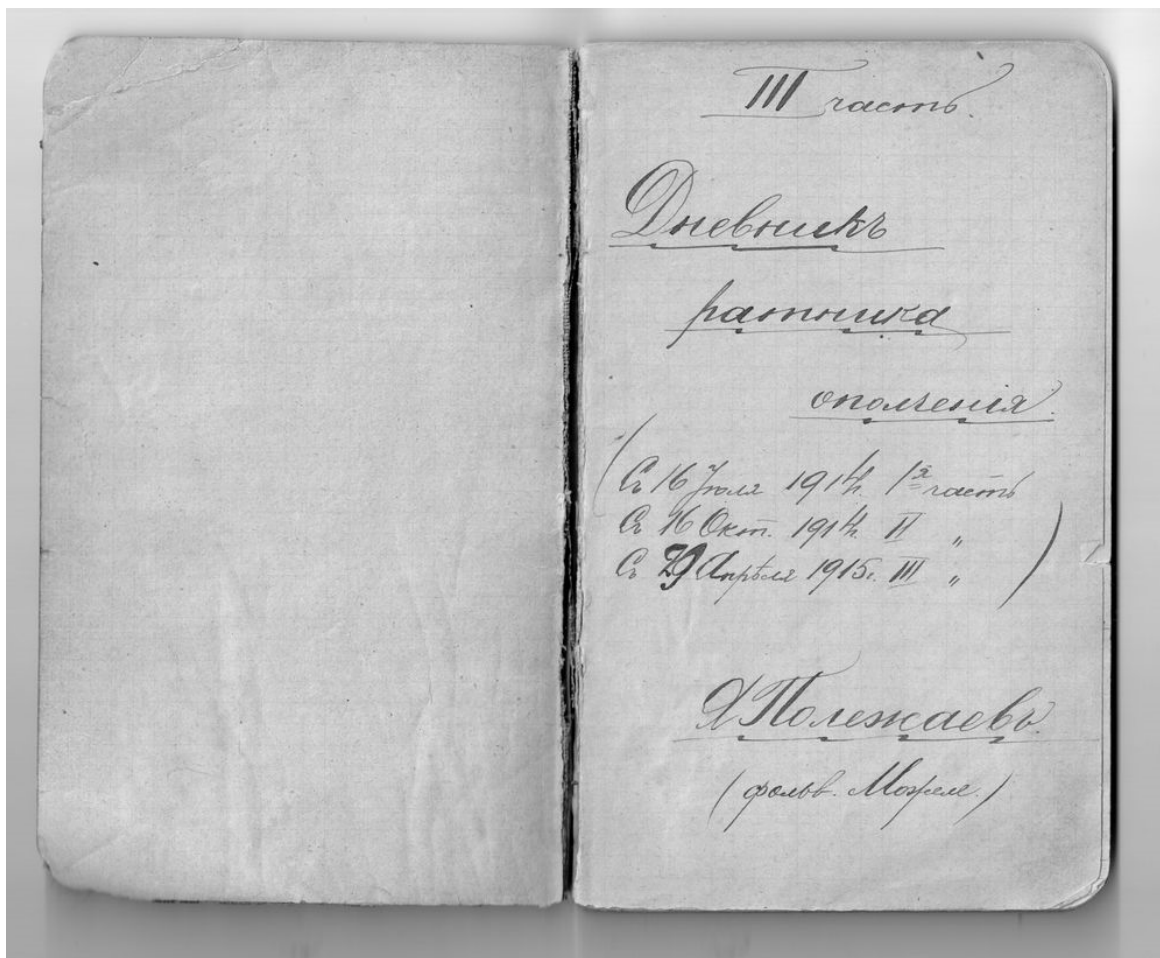 III часть.
Дневникъ
ратника
ополченія.
(Съ 16 Іюля 1914г. 1ая часть
Съ 16 Окт. 1914г. II „
Съ 29 Апрѣля 1915г. III „ )
Полежаевъ.
(фольв.